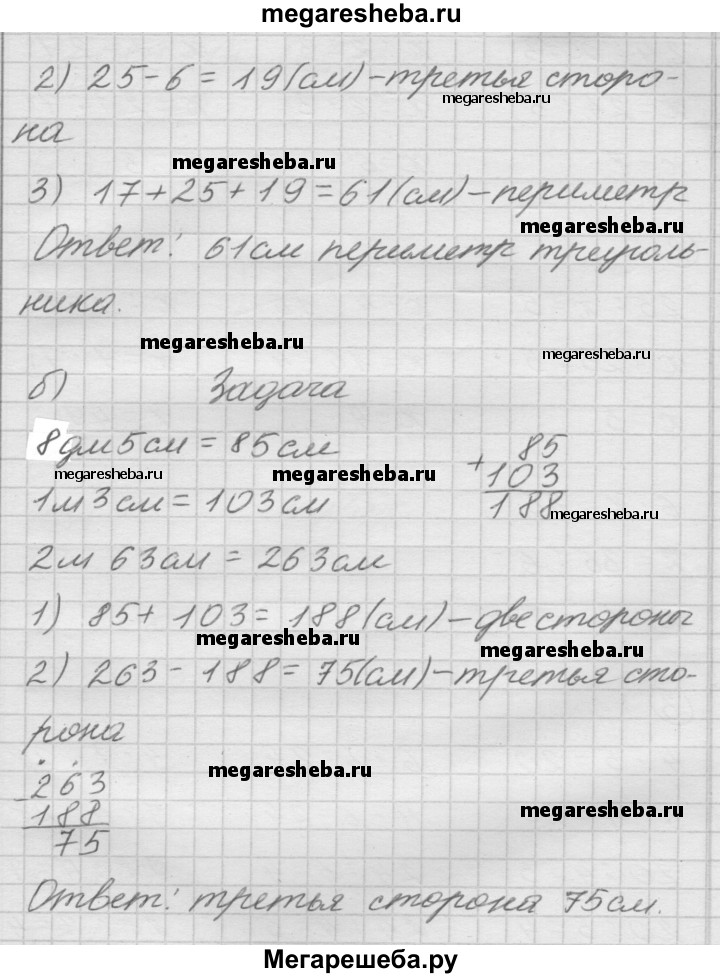 megaresheba.ru
2) 25 - 6 = 19 (см) - третья сторо-
megaresheba.ru
на
megaresheba.ru
3) 17 + 25 + 19 = 61 (см) - периметр
megaresheba.ru
Ответ: 61 см периметр треуголь-
ника.
megaresheba.ru
megaresheba.ru
б) Задача
8дм 5см = 85см
85
+ 103
188
megaresheba.ru
megaresheba.ru
1м 3см = 103см
megaresheba.ru
2м 63см = 263см
1) 85 + 103 = 188 (см) - две стороны
megaresheba.ru
megaresheba.ru
2) 263 - 188 = 75 (см) - третья сто-
рона
megaresheba.ru
263
- 188
75
megaresheba.ru
Ответ: третья сторона 75см.
Мегарешеба.ру